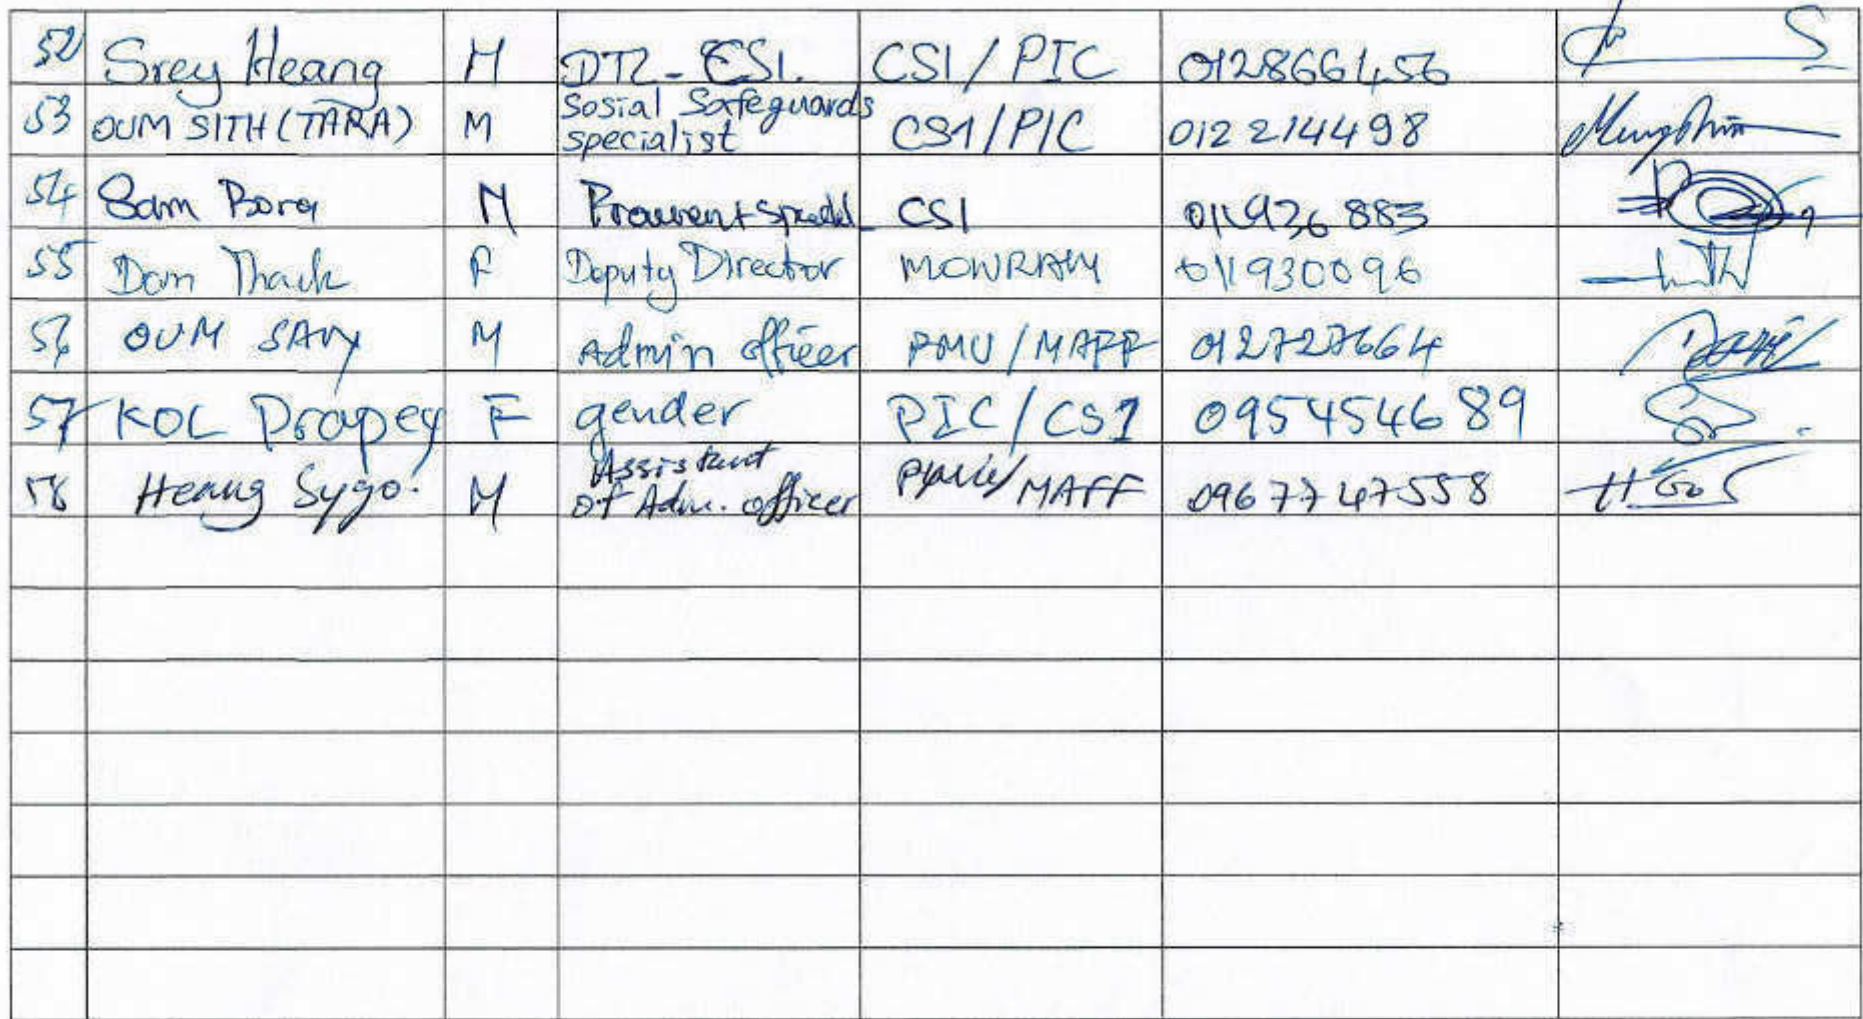 52 Srey Heang M DTL-CS1. CS1/PIC 012866456
53 OUM SITH (TARA) M Sosial Safeguards specialist CS1/PIC 012 214498
54 Sam Bora M CS1 011 936 883
55 Dom Deputy Director MOWRAM 011930096
56 OUM SAVY M Admin officer PMU/MAFF 012727664
57 KOL Prapey F gender PIC/CS1 0954546 89
58 Heang Sygo. M Assistant of Adm. officer /MAFF 09677 47558